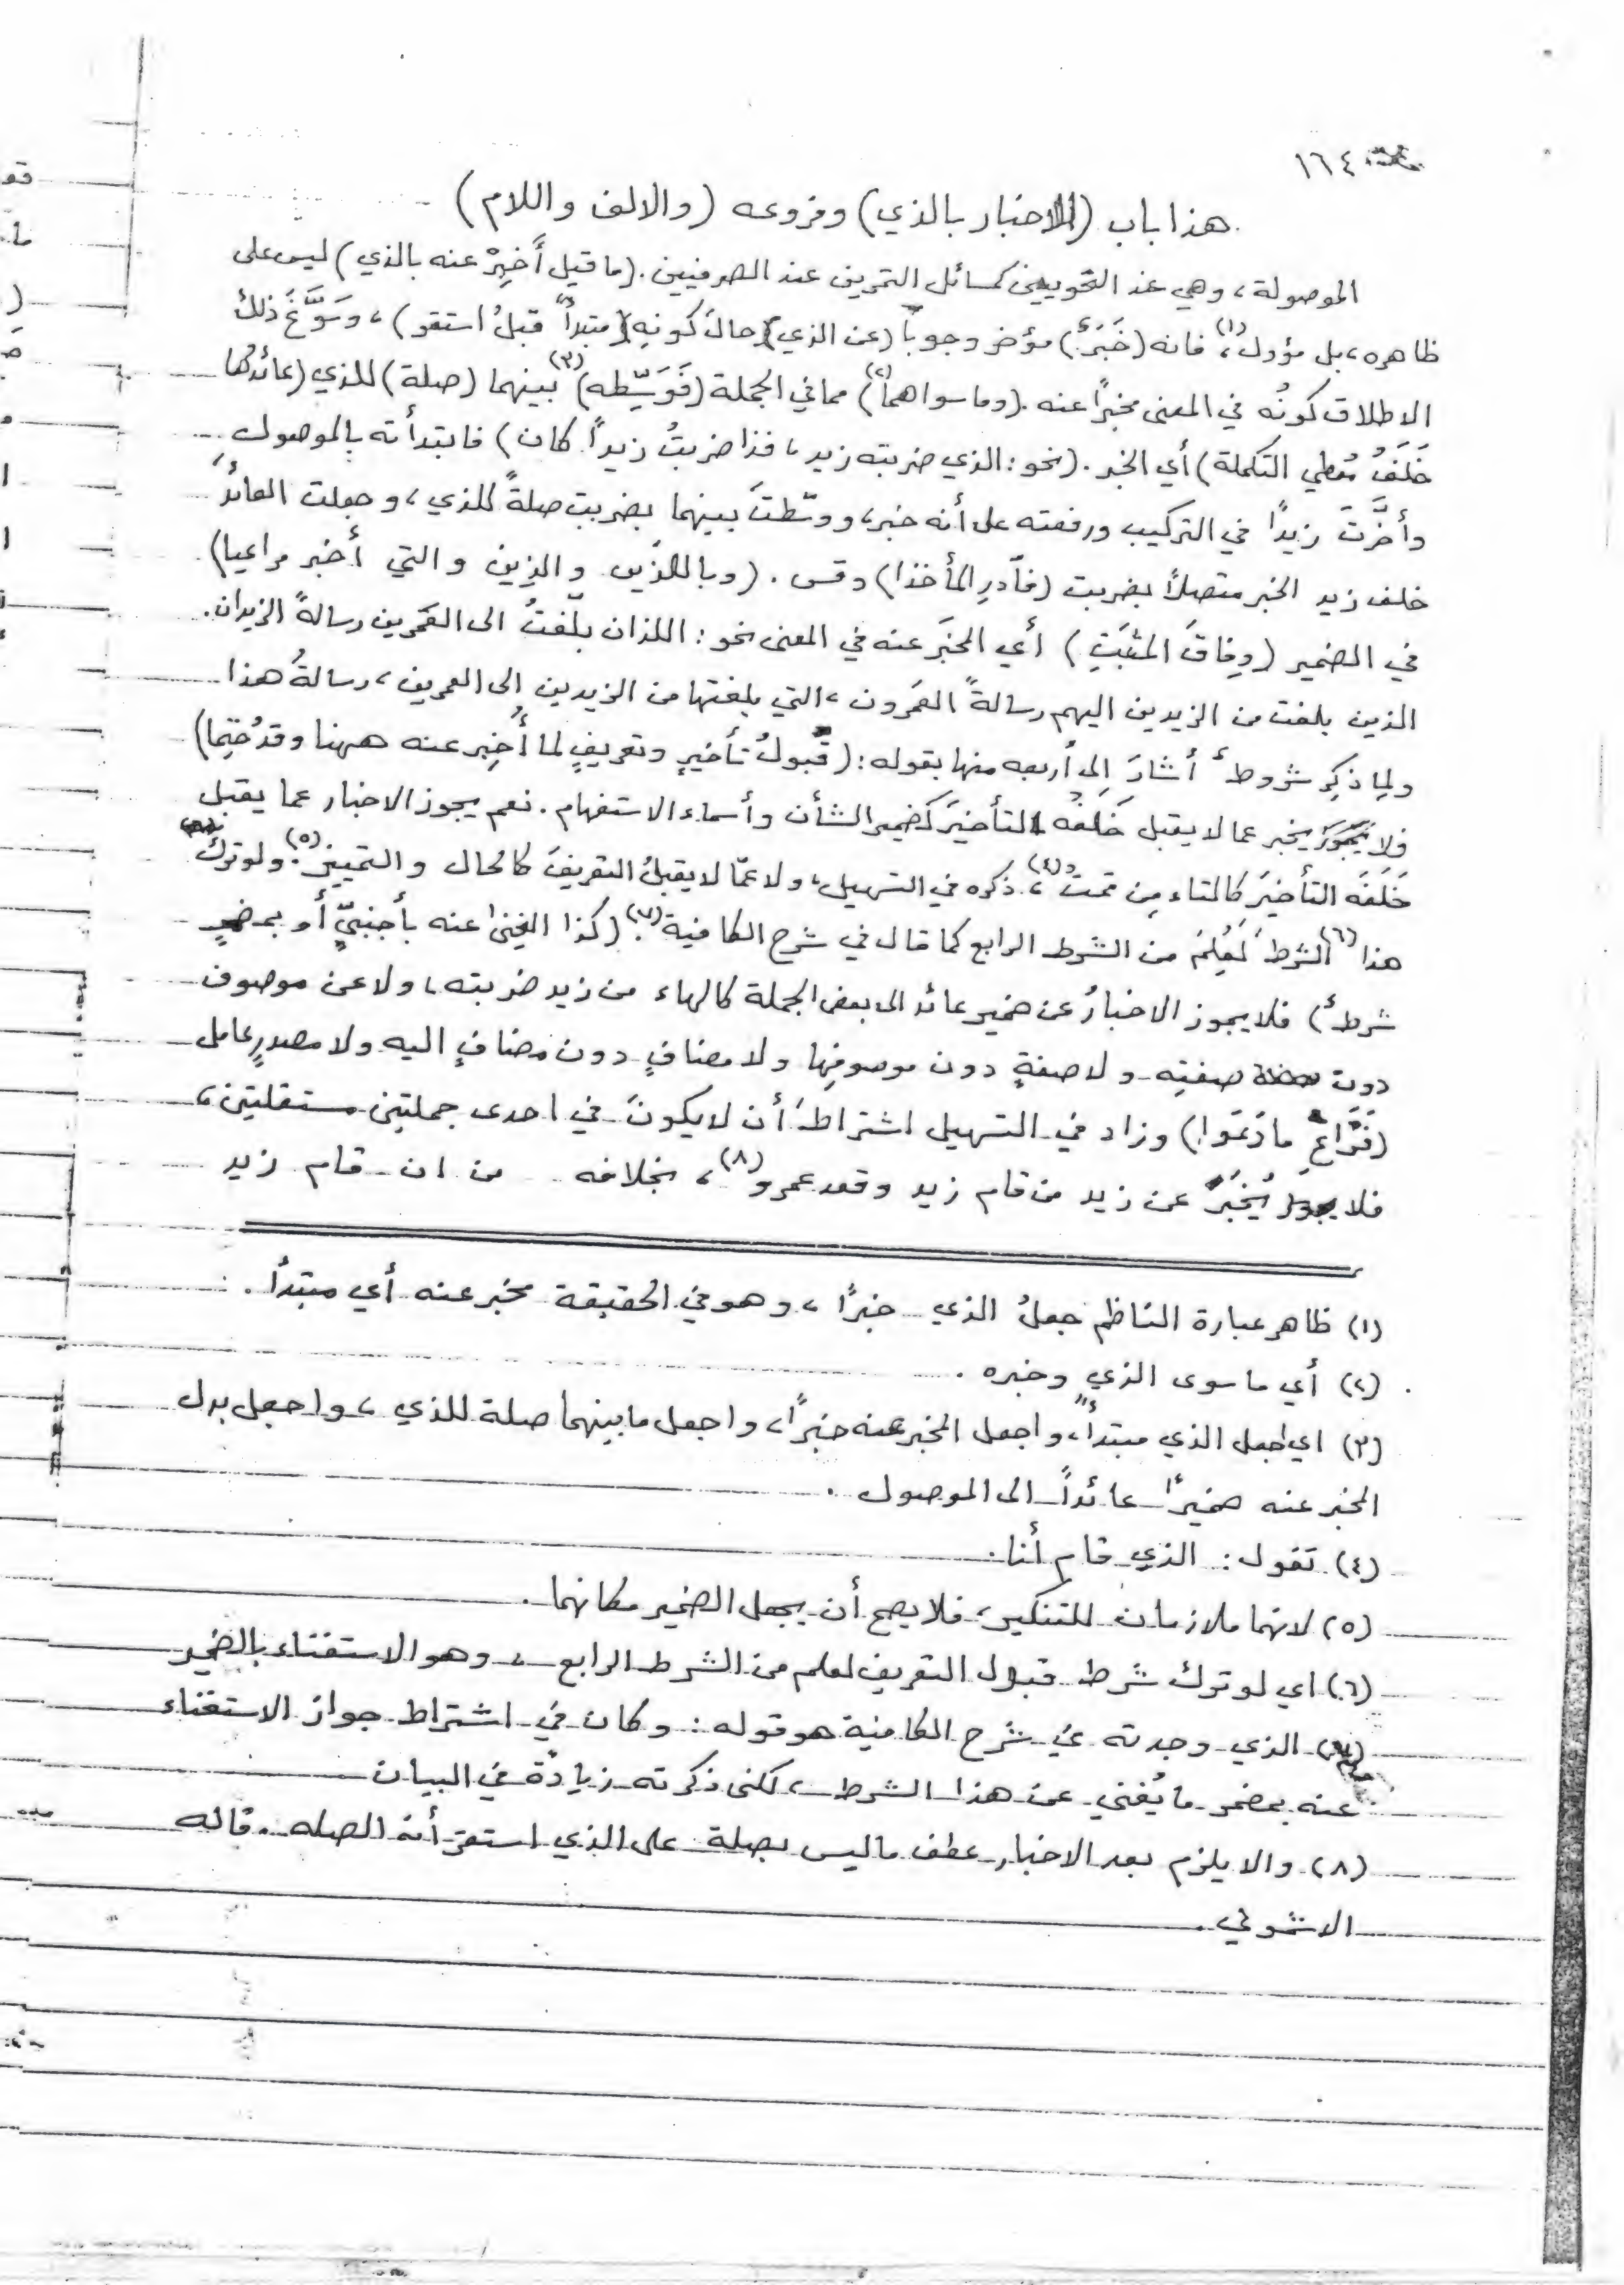 ١٦٤
هذا باب (الاخبار بالذي) وفروعه (والالف واللام)
الموصولة، وهي عند النحويين كمسائل التمرين عند الصرفيين. (ما قيل أَخبِرْ عنه بالذي) ليس على
ظاهره، بل مؤول (١)، فانه (خَبَرٌ) مؤخر وجوباً (عن الذي) حالَ كونِهِ (مبتدأً قبلُ استقر)، وسَوَّغَ ذلك
الاطلاقَ كونُه في المعنى مخبرًا عنه. (وما سواهما) (٢) مما في الجملة (فَوَسِّطه) (٣) بينهما (صلة) للذي (عائدُها
خَلَفُ مُعطي التكملة) أي الخبر. (نحو: الذي ضربته زيد، فذا ضربتُ زيداً كان) فابتدأته بالموصول،
وأخَّرتَ زيدًا في التركيب ورفعته على أنه خبر، ووسّطتَ بينهما بضربت صلةً للذي، وجعلت العائدَ
خلف زيد الخبر متصلاً بضربت (فآدرِ المأخذا) وقس. (وباللذَين والذِين والتي أخبر مراعيا)
في الضمير (وِفاقَ المثبَتِ) أي المخبَر عنه في المعنى نحو: اللذان بلغتُ الى العَمرين رسالةً الزيدان.
الذين بلغت من الزيدين اليهم رسالةً العَمرون، التي بلغتها من الزيدين إلى العمرين، رسالةُ هذا
ولِما ذكِر شروطٌ أشارَ إلى أربعه منها بقوله: (قَبولُ تأخيرٍ وتعريفٍ لما أُخبِر عنه ههنا وقد حُتِما)
فلا يخبر عما لا يقبل خَلَفُه التأخيرَ كضمير الشأن وأسماء الاستفهام. نعم يجوز الاخبار عما يقبل
خَلَفُه التأخيرَ كالتاء مِن قمت (٤)، ذكره في التسهيل، ولا عمّا لا يقبلُ التعريفَ كالحال والتمييز (٥). ولو تركَ
هذا (٦) الشرطَ لَعُلِمَ من الشرط الرابع كما قال في شرح الكافية (٧). (كذا الغِنىٰ عنه بأجنبيٍّ أو بمضمرٍ
شرطٌ) فلا يجوز الاخبارُ عن ضمير عائد الى بعض الجملة كالهاء من زيد ضربته، ولا عن موصوف
دون صفتِه ولا صفةٍ دون موصوفِها ولا مضافٍ دون مضافٍ اليه ولا مصدرٍ عامل
(فَرَّاعِ ما رَعَوا) وزاد في التسهيل اشتراطَ أن لا يكونَ في احدى جملتين مستقلتين،
فلا يُخبَرُ عن زيد من قام زيد وقعد عمرو (٨)، بخلافه من ان قام زيد
(١) ظاهر عبارة الناظم جعلُ الذي خبرًا، وهو في الحقيقة مخبر عنه أي مبتدأ.
(٢) أي ما سوى الذي وخبره.
(٣) اي اجعل الذي مبتدأً، واجعل المخبر عنه خبرًا، واجعل ما بينهما صلة للذي، واجعل بدل
المخبر عنه ضميرًا عائداً الى الموصول.
(٤) تقول: الذي قام أنا.
(٥) لانهما ملازمان للتنكير، فلا يصح أن يجعل الضمير مكانهما.
(٦) اي لو ترك شرط قبول التعريف لعلم من الشرط الرابع، وهو الاستغناء بالضمير
(٧) الذي وجدته في شرح الكافية هو قوله: وكان في اشتراط جواز الاستغناء
عنه بمضمر ما يُغني عن هذا الشرط، لكنى ذكرته زيادة في البيان
(٨) والا يلزم بعد الاخبار عطف ما ليس بصلة على الذي استقر أنه الصله. قاله
الاشموني.